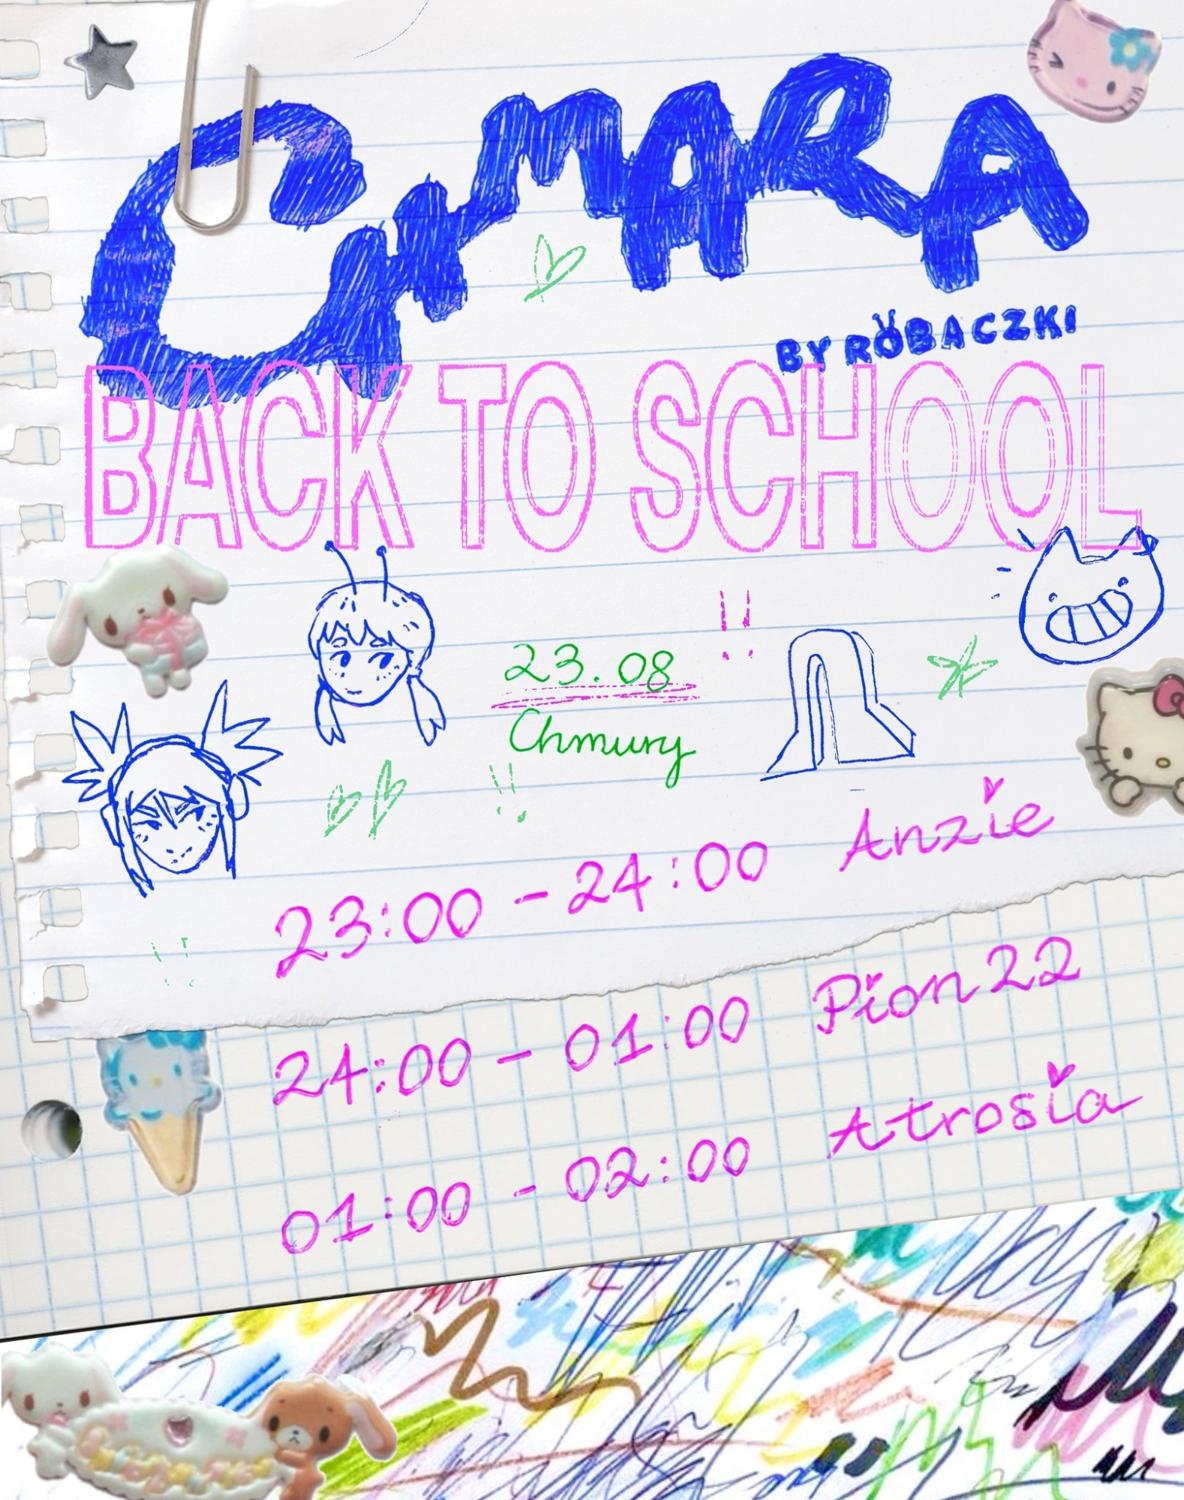 CHMARA
BY ROBACZKI
BACK TO SCHOOL
!!
23.08
Chmury
!!
23:00 - 24:00 Anzie
!!
24:00 - 01:00 Pion22
01:00 - 02:00 Atrosia